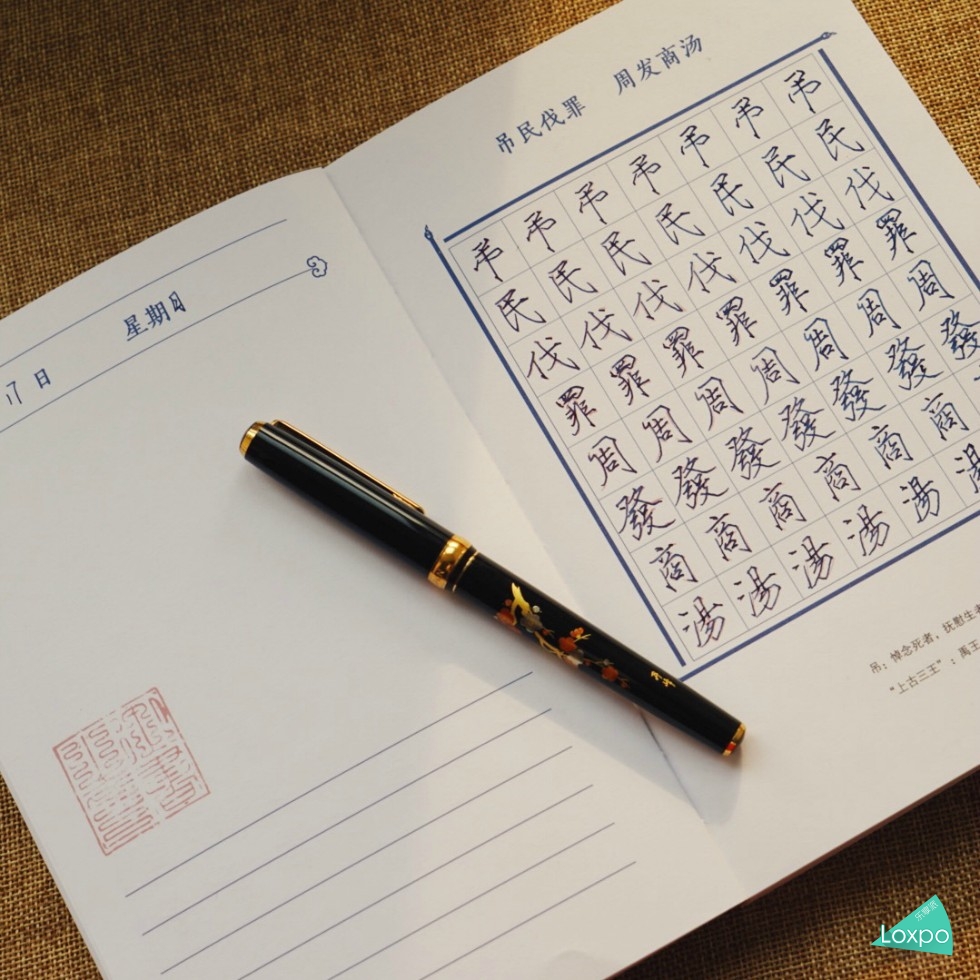 17日 星期日
吊民伐罪 周发商汤
吊 吊 吊 吊 吊 吊 吊
民 民 民 民 民 民 民
伐 伐 伐 伐 伐 伐 伐
罪 罪 罪 罪 罪 罪 罪
周 周 周 周 周 周 周
發 發 發 發 發 發 發
商 商 商 商 商 商
湯 湯 湯 湯 湯 湯
吊：悼念死者，抚慰生者
“上古三王”：禹王
Loxpo